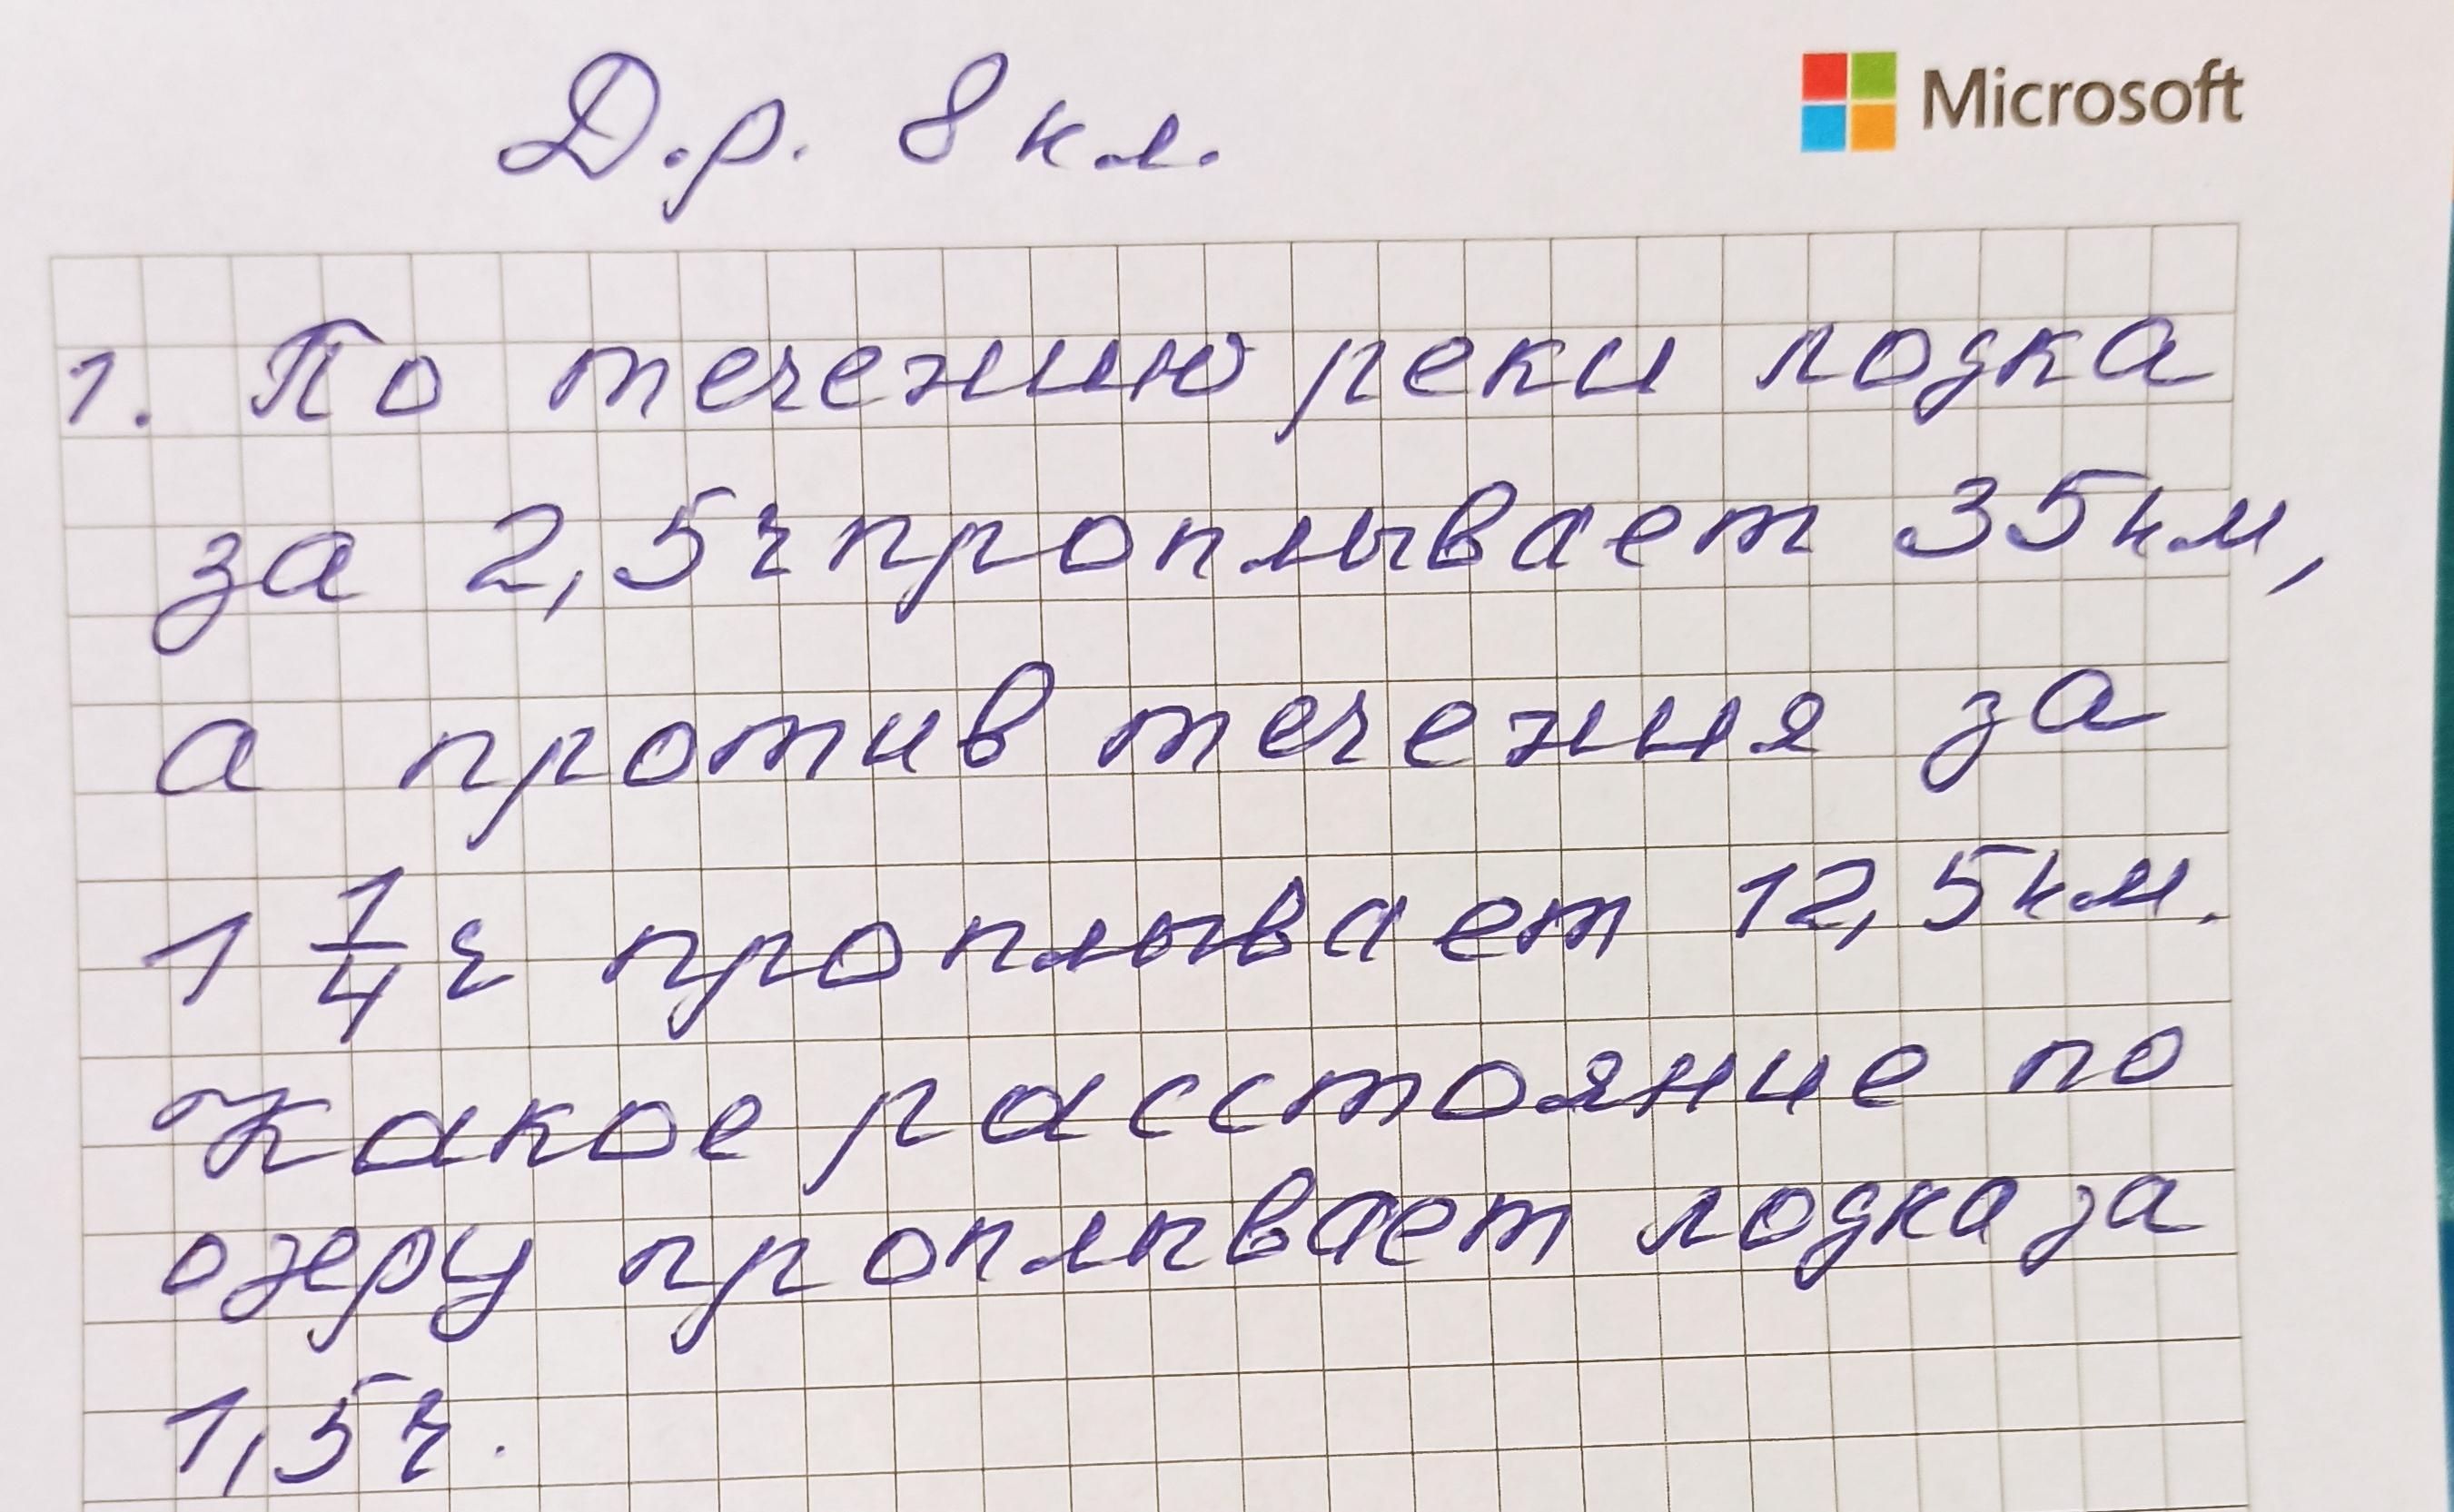 Д.р. 8 кл.
Microsoft
1. По течению реки лодка
за 2,5 ч проплывает 35 км,
а против течения за
1 1/4 ч проплывает 12,5 км.
Какое расстояние по
озеру проплывает лодка за
1,5 ч.